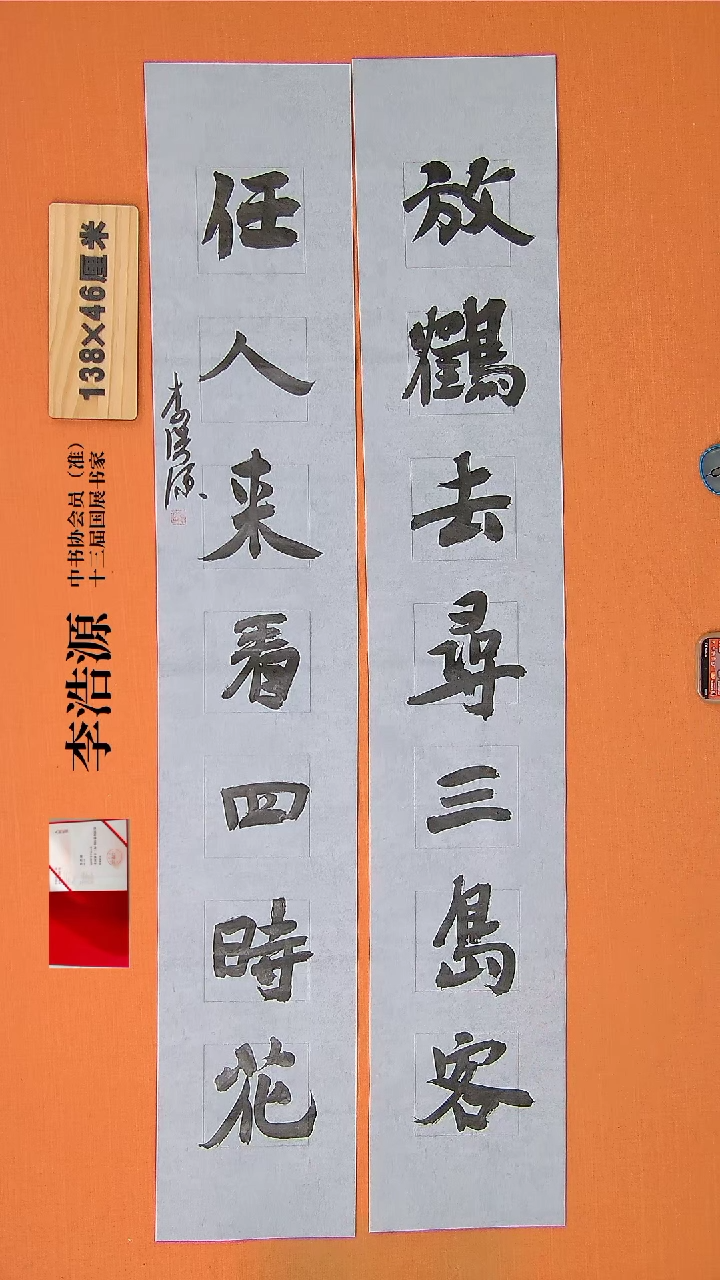 放鶴去尋三島客
任人来看四時花
李浩源
138×46厘米
李浩源
中书协会员（准）
十三届国展书家